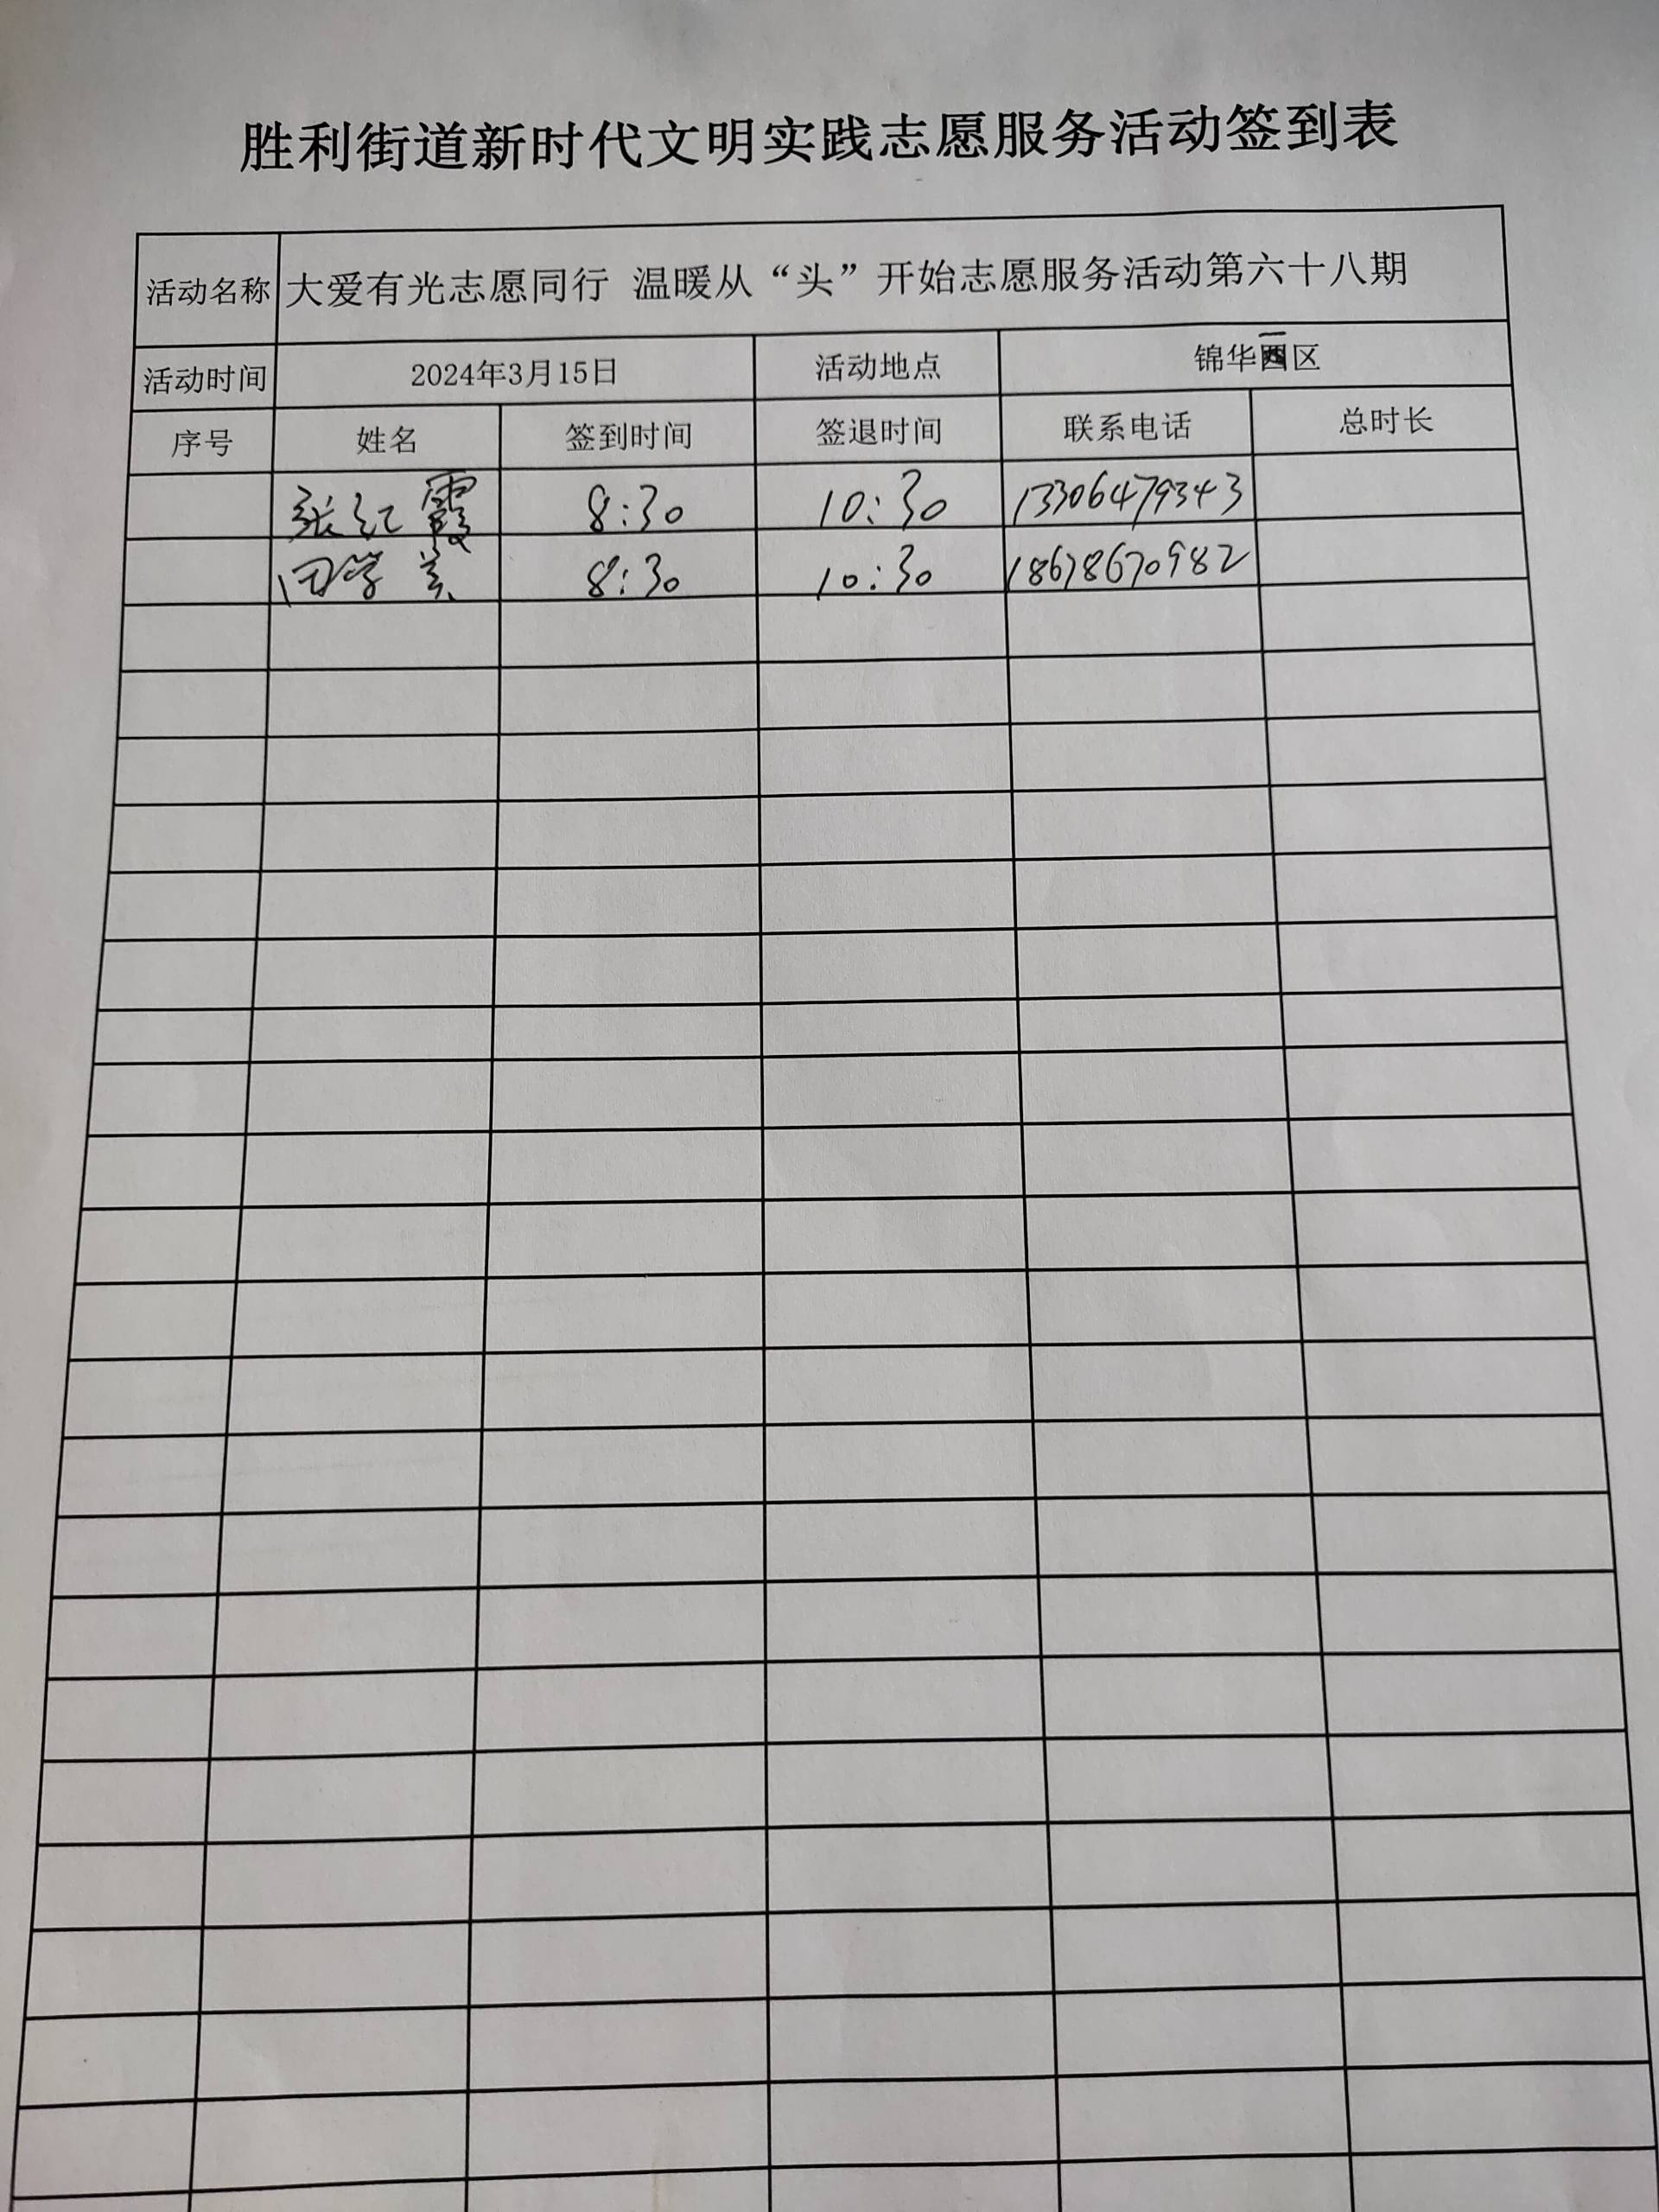 胜利街道新时代文明实践志愿服务活动签到表
活动名称 大爱有光志愿同行 温暖从“头”开始志愿服务活动第六十八期
活动时间 2024年3月15日 活动地点 锦华区
序号 姓名 签到时间 签退时间 联系电话 总时长
张红霞 8:30 10:30 13306479343
田学美 8:30 10:30 18678670982